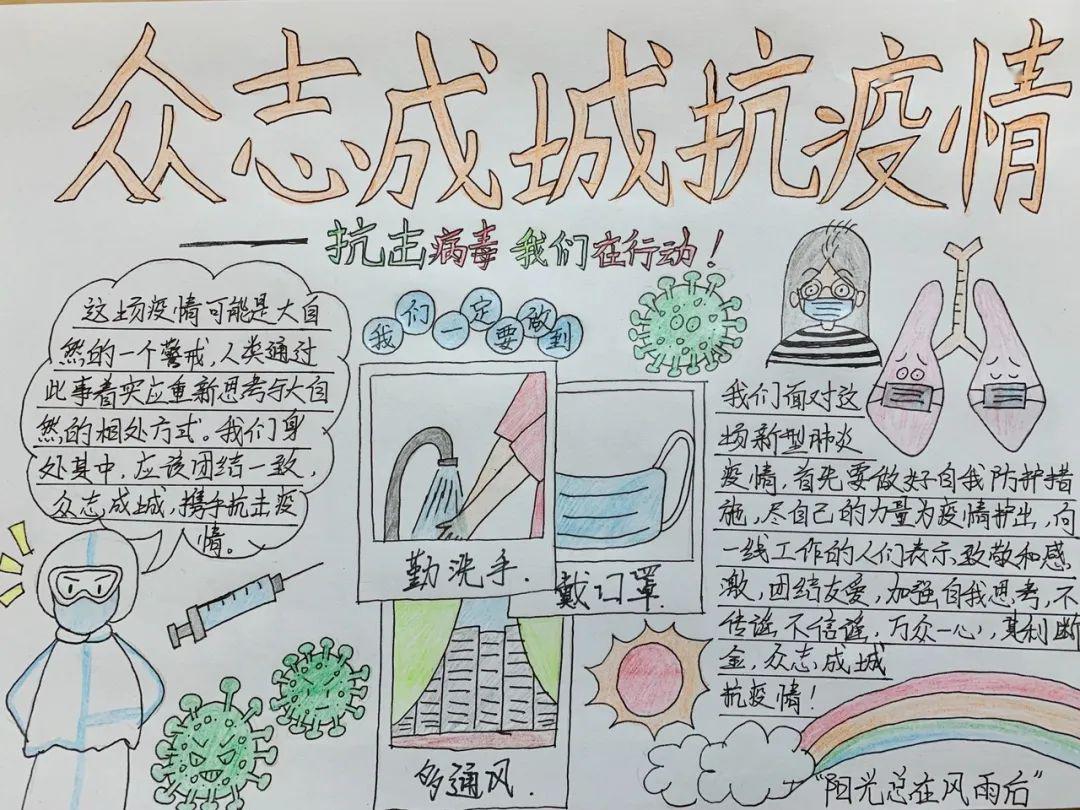 众志成城抗疫情
——抗击病毒 我们在行动！
这场疫情可能是大自
然的一个警戒，人类通过
此事着实应重新思考与大自
然的相处方式。我们身
处其中，应该团结一致，
众志成城，携手抗击疫
情。
我们一定要做到
勤洗手.
戴口罩.
多通风.
我们面对这
场新型肺炎
疫情，首先要做好自我防护措
施，尽自己的力量为疫情护出，向
一线工作的人们表示致敬和感
激，团结友爱，加强自我思考，不
传谣不信谣，万众一心，其利断
金，众志成城
抗疫情！
“阳光总在风雨后”